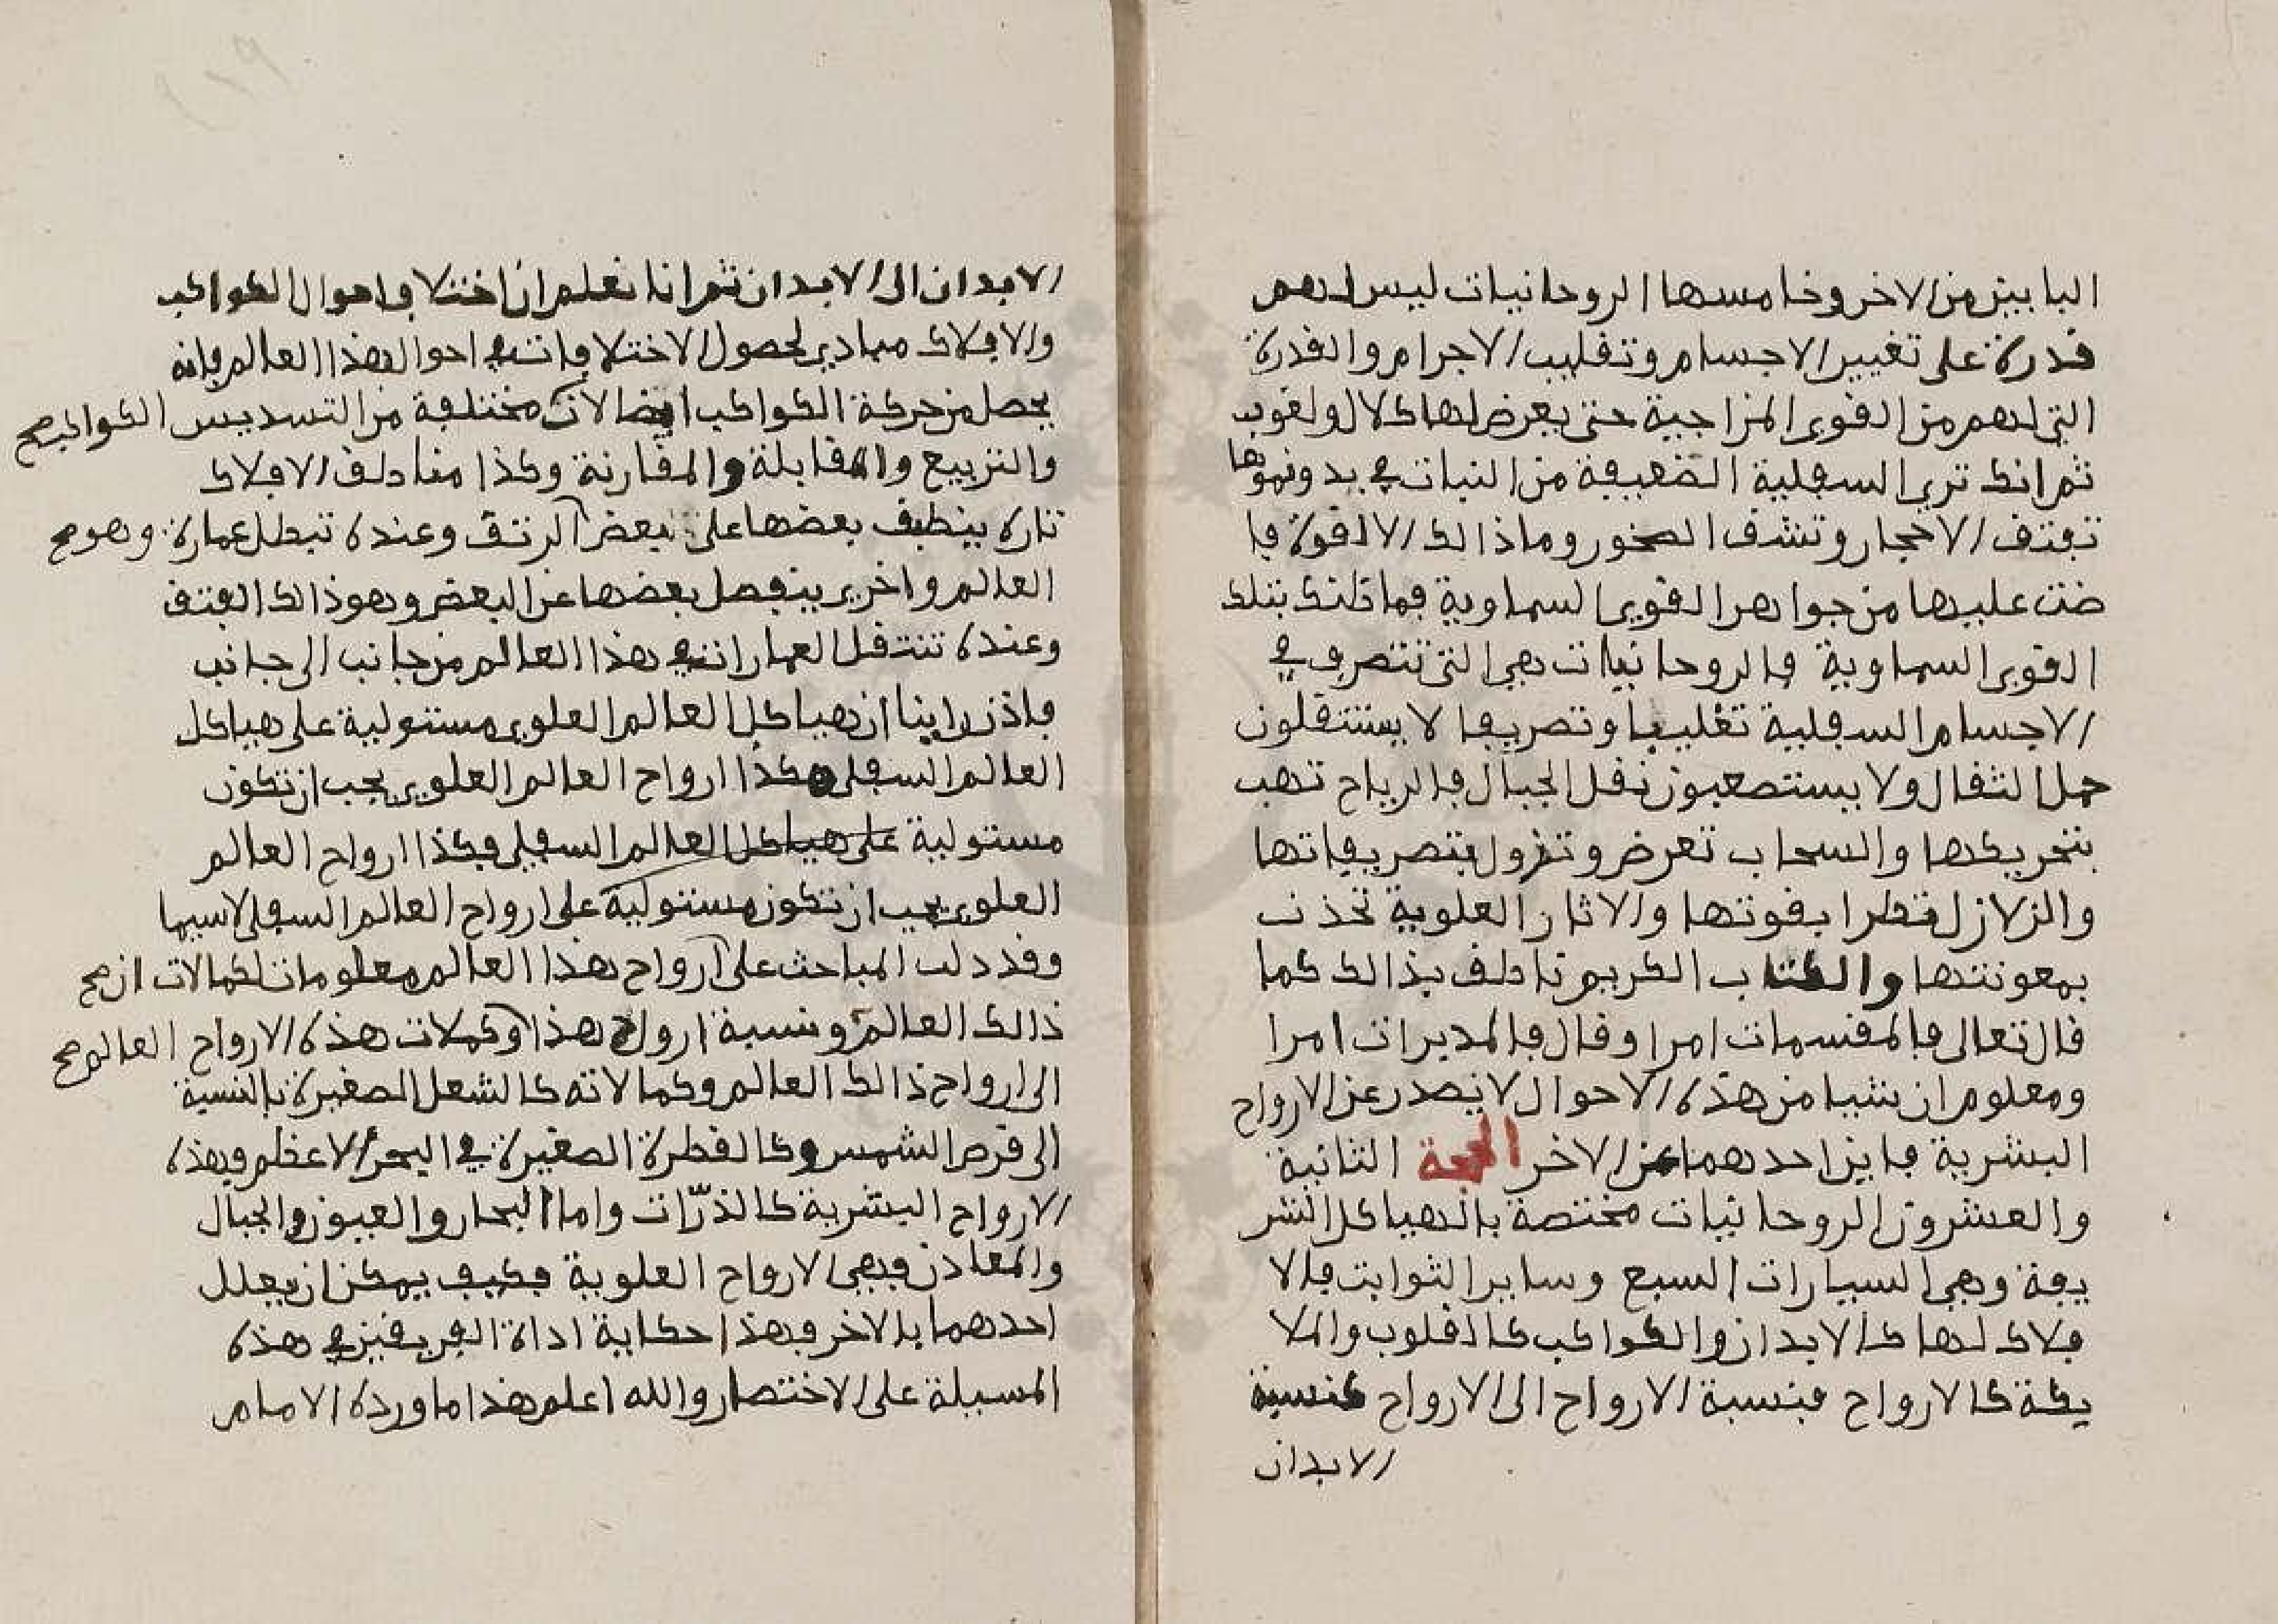 البابين من الاخر وخامسها الروحانيات ليس لهم
قدرة على تغيير الاجسام وتقليب الاجرام والقدرة
التى لهم من القوى المزاجية حتى يعرض لها كلال ولغوب
ثم انك ترى السفلية الضعيفة من النبات في بدو نموها
تفتق الاحجار وتشق الصخور وما ذالك الا لقوة فا
ضت عليها من جواهر القوى السماوية فما ظنك بتلك
القوى السماوية فالروحانيات هي التى تتصرف في
الاجسام السفلية تغليبا وتصريفا لا يستثقلون
حمل الثقال ولا يستصعبون نقل الجبال فالرياح تهب
بتحريكها والسحاب تعرض وتزول بتصريفاتها
والزلازل تطرا بقوتها والاثار العلوية تحدث
بمعونتها والكتاب الكريم ناطق بذالك كما
قال تعالى فالمقسمات امرا وقال فالمدبرات امرا
ومعلوم ان شيا من هذه الاحوال لا يصدر عن الارواح
البشرية فاين احدهما من الاخر الحجة الثانية
والعشرون الروحانيات مختصة بالهياكل الشر
يفة وهي السيارات السبع وساير الثوابت فالا
فلاك لها كالابدان والكواكب كالقلوب والملا
يكة كالارواح فنسبة الارواح الى الارواح كنسبة
الابدان
الابدان الى الابدان ثم انا نعلم ان اختلاف احوال الكواكب
والافلاك مبادى لحصول الاختلافات في احوال هذا العالم فانه
يحصل من حركة الكواكب اتصالات مختلفة من التسديس الكواكب صح
والتربيع والمقابلة والمقارنة وكذا مناطق الافلاك
تارة ينطبق بعضها على بعض الرتق وعنده تبطل عمارة وهو صح
العالم واخرى ينفصل بعضها عن البعض وهو ذالك الفتق
وعنده تنتقل العمارات في هذا العالم من جانب الى جانب
فاذن راينا ان هياكل العالم العلوى مستولية على هياكل
العالم السفلى فكذا ارواح العالم العلوى يجب ان تكون
مستولية على هياكل العالم السفلى فكذا ارواح العالم
العلوى يجب ان تكون مستولية على ارواح العالم السفلى لاسيما
وقد دلت المباحث على ارواح هذا العالم معلومات لكمالات ان صح
ذالك العالم ونسبة ارواح هذا وكملات هذه الارواح العالم صح
الى ارواح ذالك العالم وكمالاته كالشعل الصغيرة بالنسبة
الى قرص الشمس وكالقطرة الصغيرة في البحر الاعظم فهذه
الارواح البشرية كالذرّات واما البحار والعيون والجبال
والمعادن فهي الارواح العلوية فكيف يمكن ان يعلل
احدهما بالاخر فهذا حكاية اداة الفريقين في هذه
المسيلة على الاختصار والله اعلم هذا ما ورده الامام